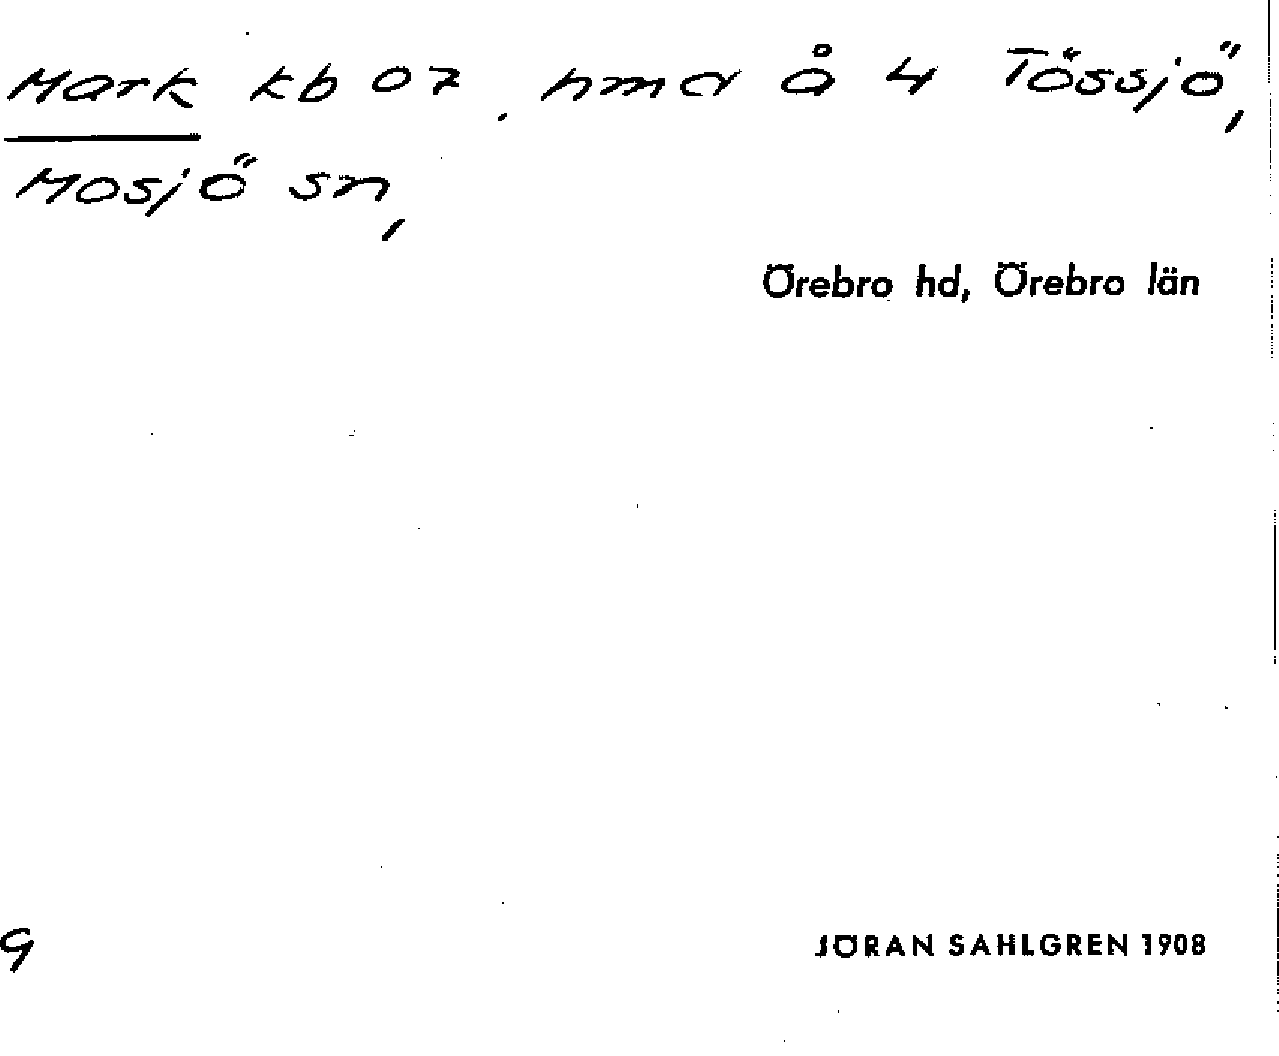 Mark kb 07. hmd å 4 Tössjö,
Mosjö sn,
Örebro hd, Örebro län
9
JÖRAN SAHLGREN 1908